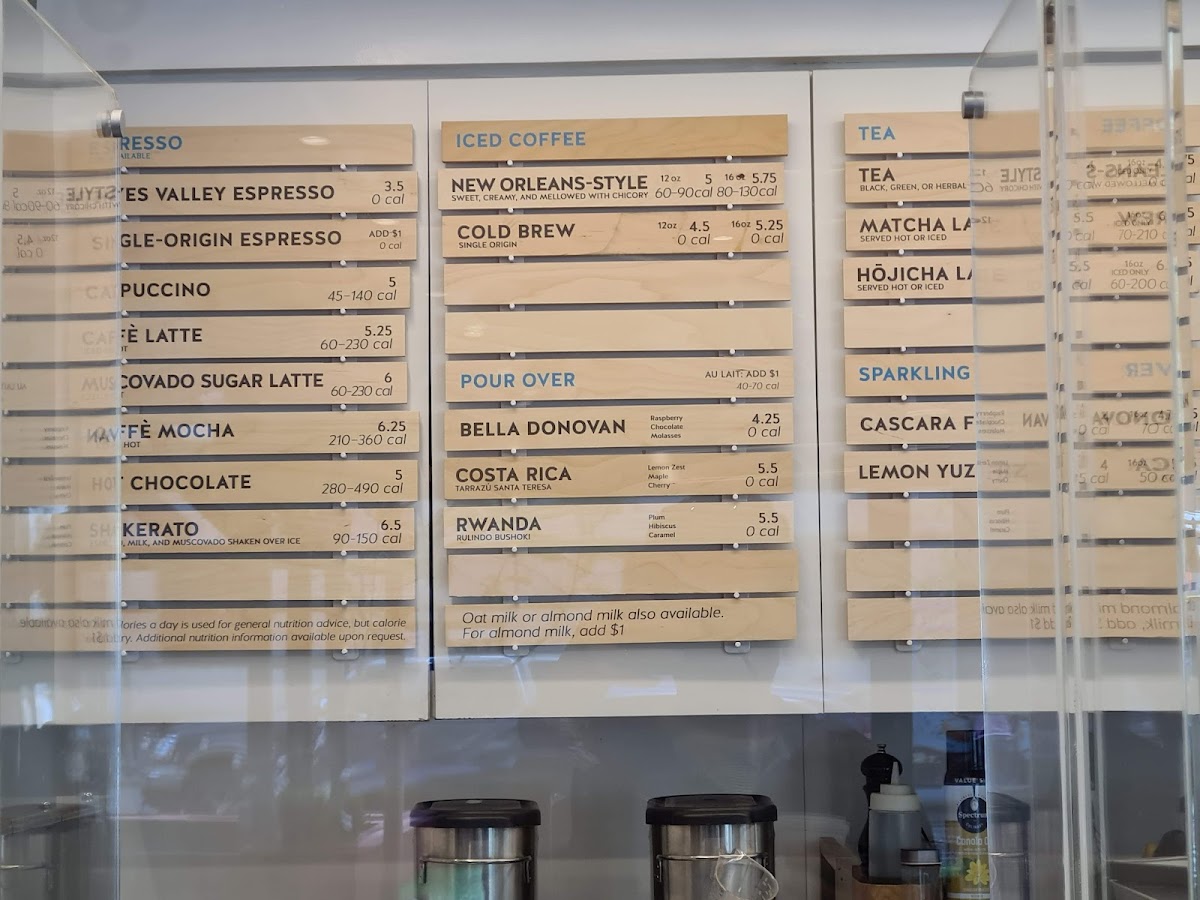 ESPRESSO
YES VALLEY ESPRESSO 3.5
0 cal
SINGLE-ORIGIN ESPRESSO ADD $1
0 cal
CAPPUCCINO 5
45-140 cal
CAFFÈ LATTE 5.25
60-230 cal
MUSCOVADO SUGAR LATTE 6
60-230 cal
FFÈ MOCHA 6.25
HOT 210-360 cal
HOT CHOCOLATE 5
280-490 cal
SHAKERATO 6.5
, MILK, AND MUSCOVADO SHAKEN OVER ICE 90-150 cal
lories a day is used for general nutrition advice, but calorie
ry. Additional nutrition information available upon request.
ICED COFFEE
NEW ORLEANS-STYLE 12oz 5 16oz 5.75
SWEET, CREAMY, AND MELLOWED WITH CHICORY 60-90cal 80-130cal
COLD BREW 12oz 4.5 16oz 5.25
SINGLE ORIGIN 0 cal 0 cal
POUR OVER AU LAIT: ADD $1
40-70 cal
BELLA DONOVAN Raspberry Chocolate Molasses 4.25
0 cal
COSTA RICA Lemon Zest Maple Cherry 5.5
TARRAZÚ SANTA TERESA 0 cal
RWANDA Plum Hibiscus Caramel 5.5
RULINDO BUSHOKI 0 cal
Oat milk or almond milk also available.
For almond milk, add $1
TEA
TEA
BLACK, GREEN, OR HERBAL
MATCHA LA
SERVED HOT OR ICED
HŌJICHA LA
SERVED HOT OR ICED
16oz
ICED ONLY
60-200
SPARKLING
CASCARA F
LEMON YUZ
Spectrum
Canola